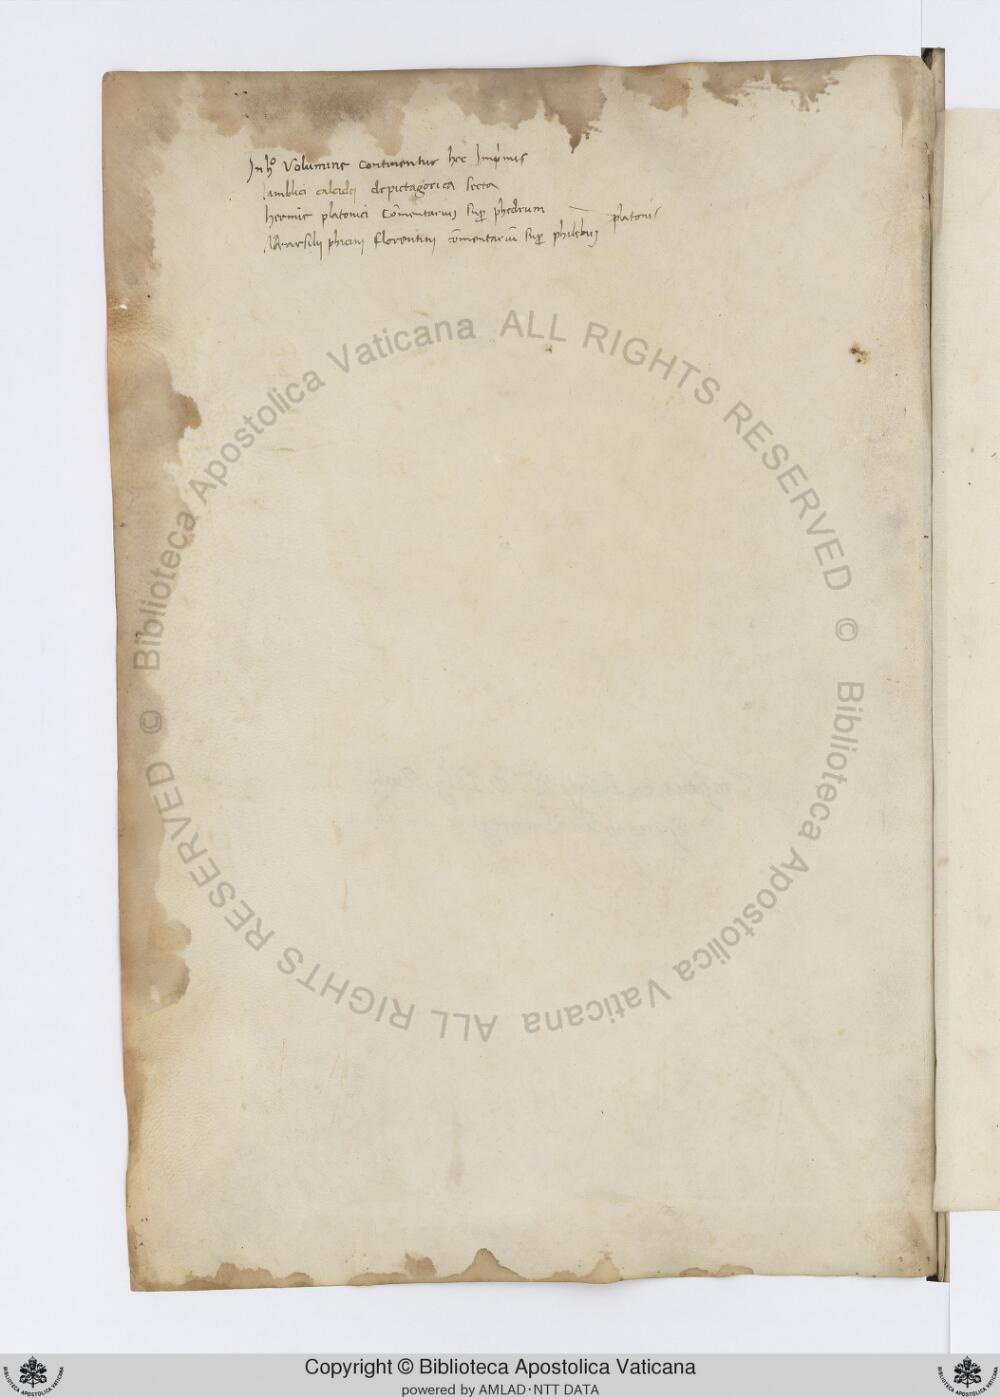 In hͦ Volumine Continentur hec Imprimis
Iamblici calcidei de pictagorica secta
Hermie platonici Cōmentarius suꝑ phedrum platonis
Marsilij phicinj florentinj cōmentariū suꝑ philebuꝫ
© Biblioteca Apostolica Vaticana ALL RIGHTS RESERVED
© Biblioteca Apostolica Vaticana ALL RIGHTS RESERVED
Copyright © Biblioteca Apostolica Vaticana
powered by AMLAD·NTT DATA
BIBLIOTECA APOSTOLICA VATICANA
BIBLIOTECA APOSTOLICA VATICANA